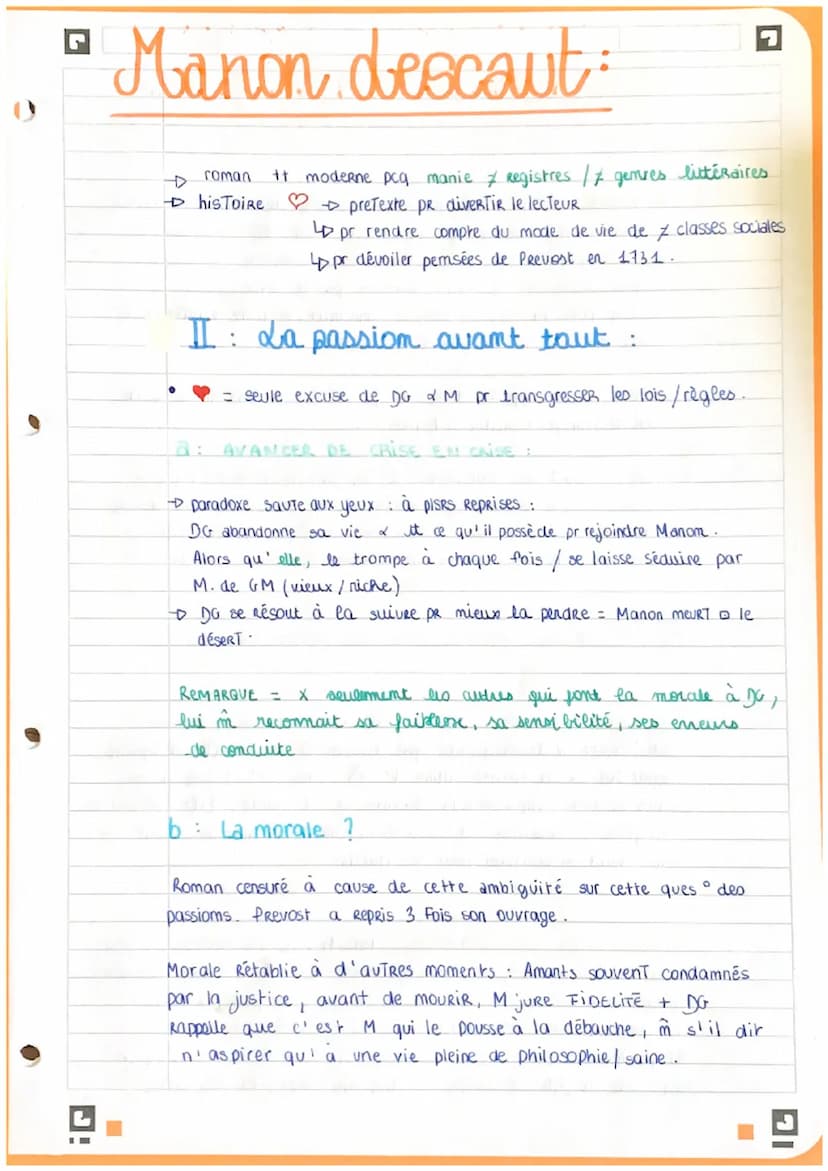 Manon descaut:
→ roman tt moderne pcq manie ≠ registres / ≠ genres littéraires
→ hisToire ♡ → preTexte pr diverTir le lecTeur
↳ pr rendre compte du mode de vie de ≠ classes sociales
↳ pr dévoiler pensées de Prevost en 1731.
II : La passion avant tout :
• ♥ = seule excuse de DG & M pr transgresser les lois / règles.
a : AVANCER DE CRISE EN CRISE :
→ paradoxe sauTe aux yeux : à plsrs reprises :
DG abandonne sa vie & tt ce qu'il possède pr rejoindre Manon.
Alors qu'elle, le trompe à chaque fois / se laisse séduire par
M. de GM (vieux / riche)
→ DG se résout à la suivre pr mieux la perdre = Manon meurT ⊡ le
déserT.
REMARQUE = x seulement les autres qui font la morale à DG,
lui m̂ reconnait sa faiblesse, sa sensibilité, ses erreurs
de conduite
b : La morale ?
Roman censuré à cause de cette ambiguité sur cette ques° des
passions. Prevost a repris 3 Fois son ouvrage.
Morale Rétablie à d'auTres moments : Amants souvenT condamnés
par la justice, avant de mourir, M jure FIDELITÉ + DG
rappelle que c'est M qui le pousse à la débauche, m̂ s'il dit
n'aspirer qu'à une vie pleine de philosophie / saine.